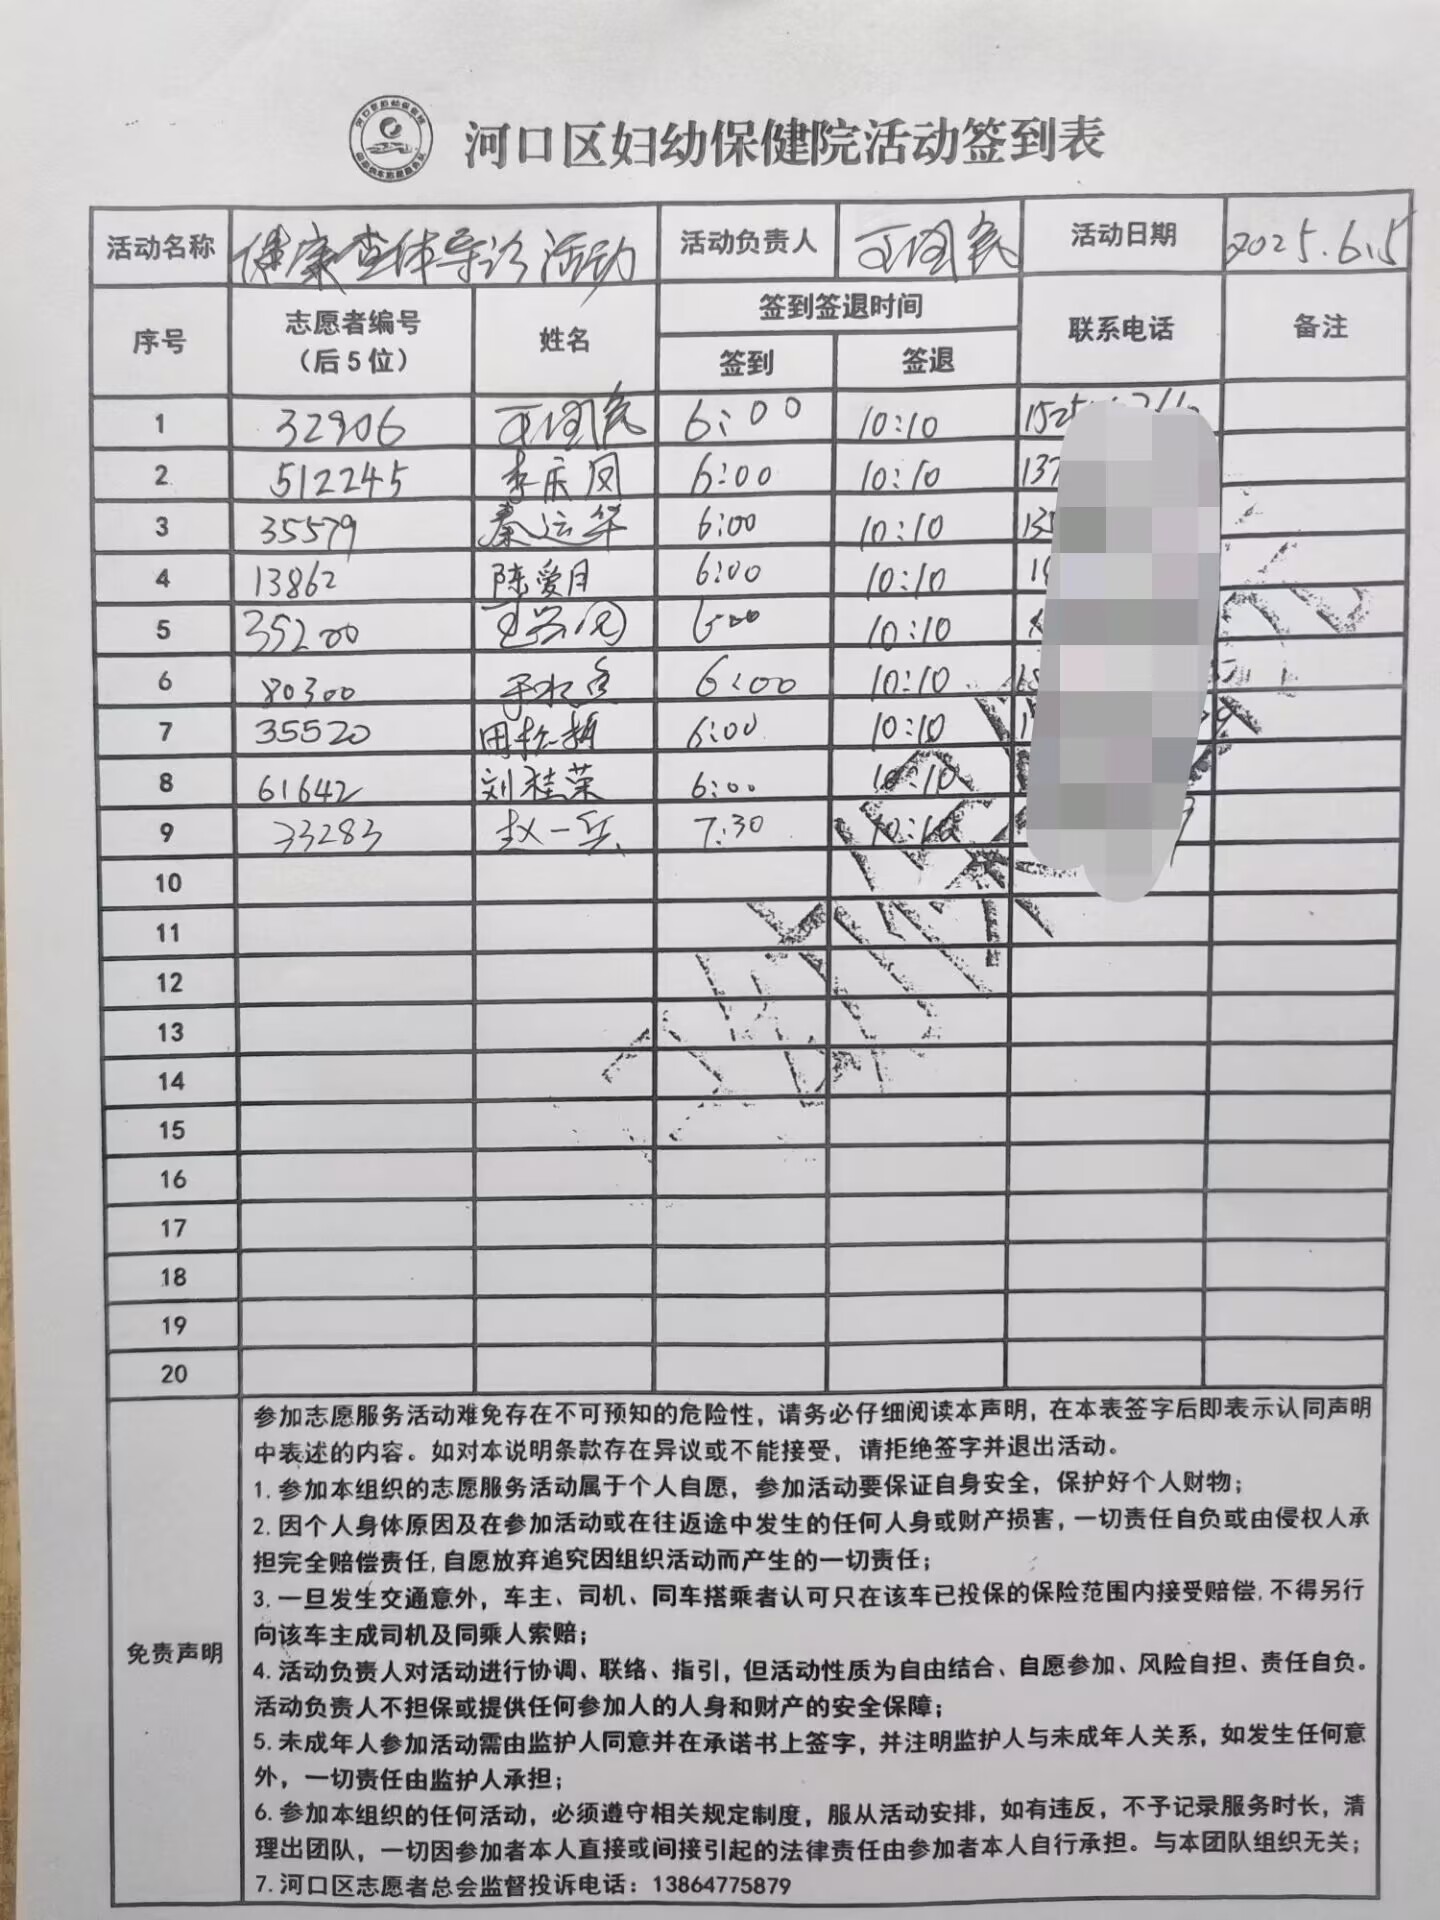 河口区妇幼保健院活动签到表
活动名称 健康查体导诊活动 活动负责人 王国民 活动日期 2025.6.5
序号 志愿者编号（后5位） 姓名 签到签退时间 联系电话 备注
签到 签退
1 32906 王国民 6:00 10:10
2 512245 李庆凤 6:00 10:10
3 35579 秦运华 6:00 10:10
4 13862 陈爱月 6:00 10:10
5 35200 6:00 10:10
6 80300 6:00 10:10
7 35520 6:00 10:10
8 61642 刘桂荣 6:00 10:10
9 33283 赵一兵 7:30 10:10
10
11
12
13
14
15
16
17
18
19
20
免责声明
参加志愿服务活动难免存在不可预知的危险性，请务必仔细阅读本声明，在本表签字后即表示认同声明
中表述的内容。如对本说明条款存在异议或不能接受，请拒绝签字并退出活动。
1.参加本组织的志愿服务活动属于个人自愿，参加活动要保证自身安全，保护好个人财物；
2.因个人身体原因及在参加活动或在往返途中发生的任何人身或财产损害，一切责任自负或由侵权人承
担完全赔偿责任,自愿放弃追究因组织活动而产生的一切责任；
3.一旦发生交通意外，车主、司机、同车搭乘者认可只在该车已投保的保险范围内接受赔偿,不得另行
向该车主成司机及同乘人索赔；
4.活动负责人对活动进行协调、联络、指引，但活动性质为自由结合、自愿参加、风险自担、责任自负。
活动负责人不担保或提供任何参加人的人身和财产的安全保障；
5.未成年人参加活动需由监护人同意并在承诺书上签字，并注明监护人与未成年人关系，如发生任何意
外，一切责任由监护人承担；
6.参加本组织的任何活动，必须遵守相关规定制度，服从活动安排，如有违反，不予记录服务时长，清
理出团队，一切因参加者本人直接或间接引起的法律责任由参加者本人自行承担。与本团队组织无关；
7.河口区志愿者总会监督投诉电话：13864775879